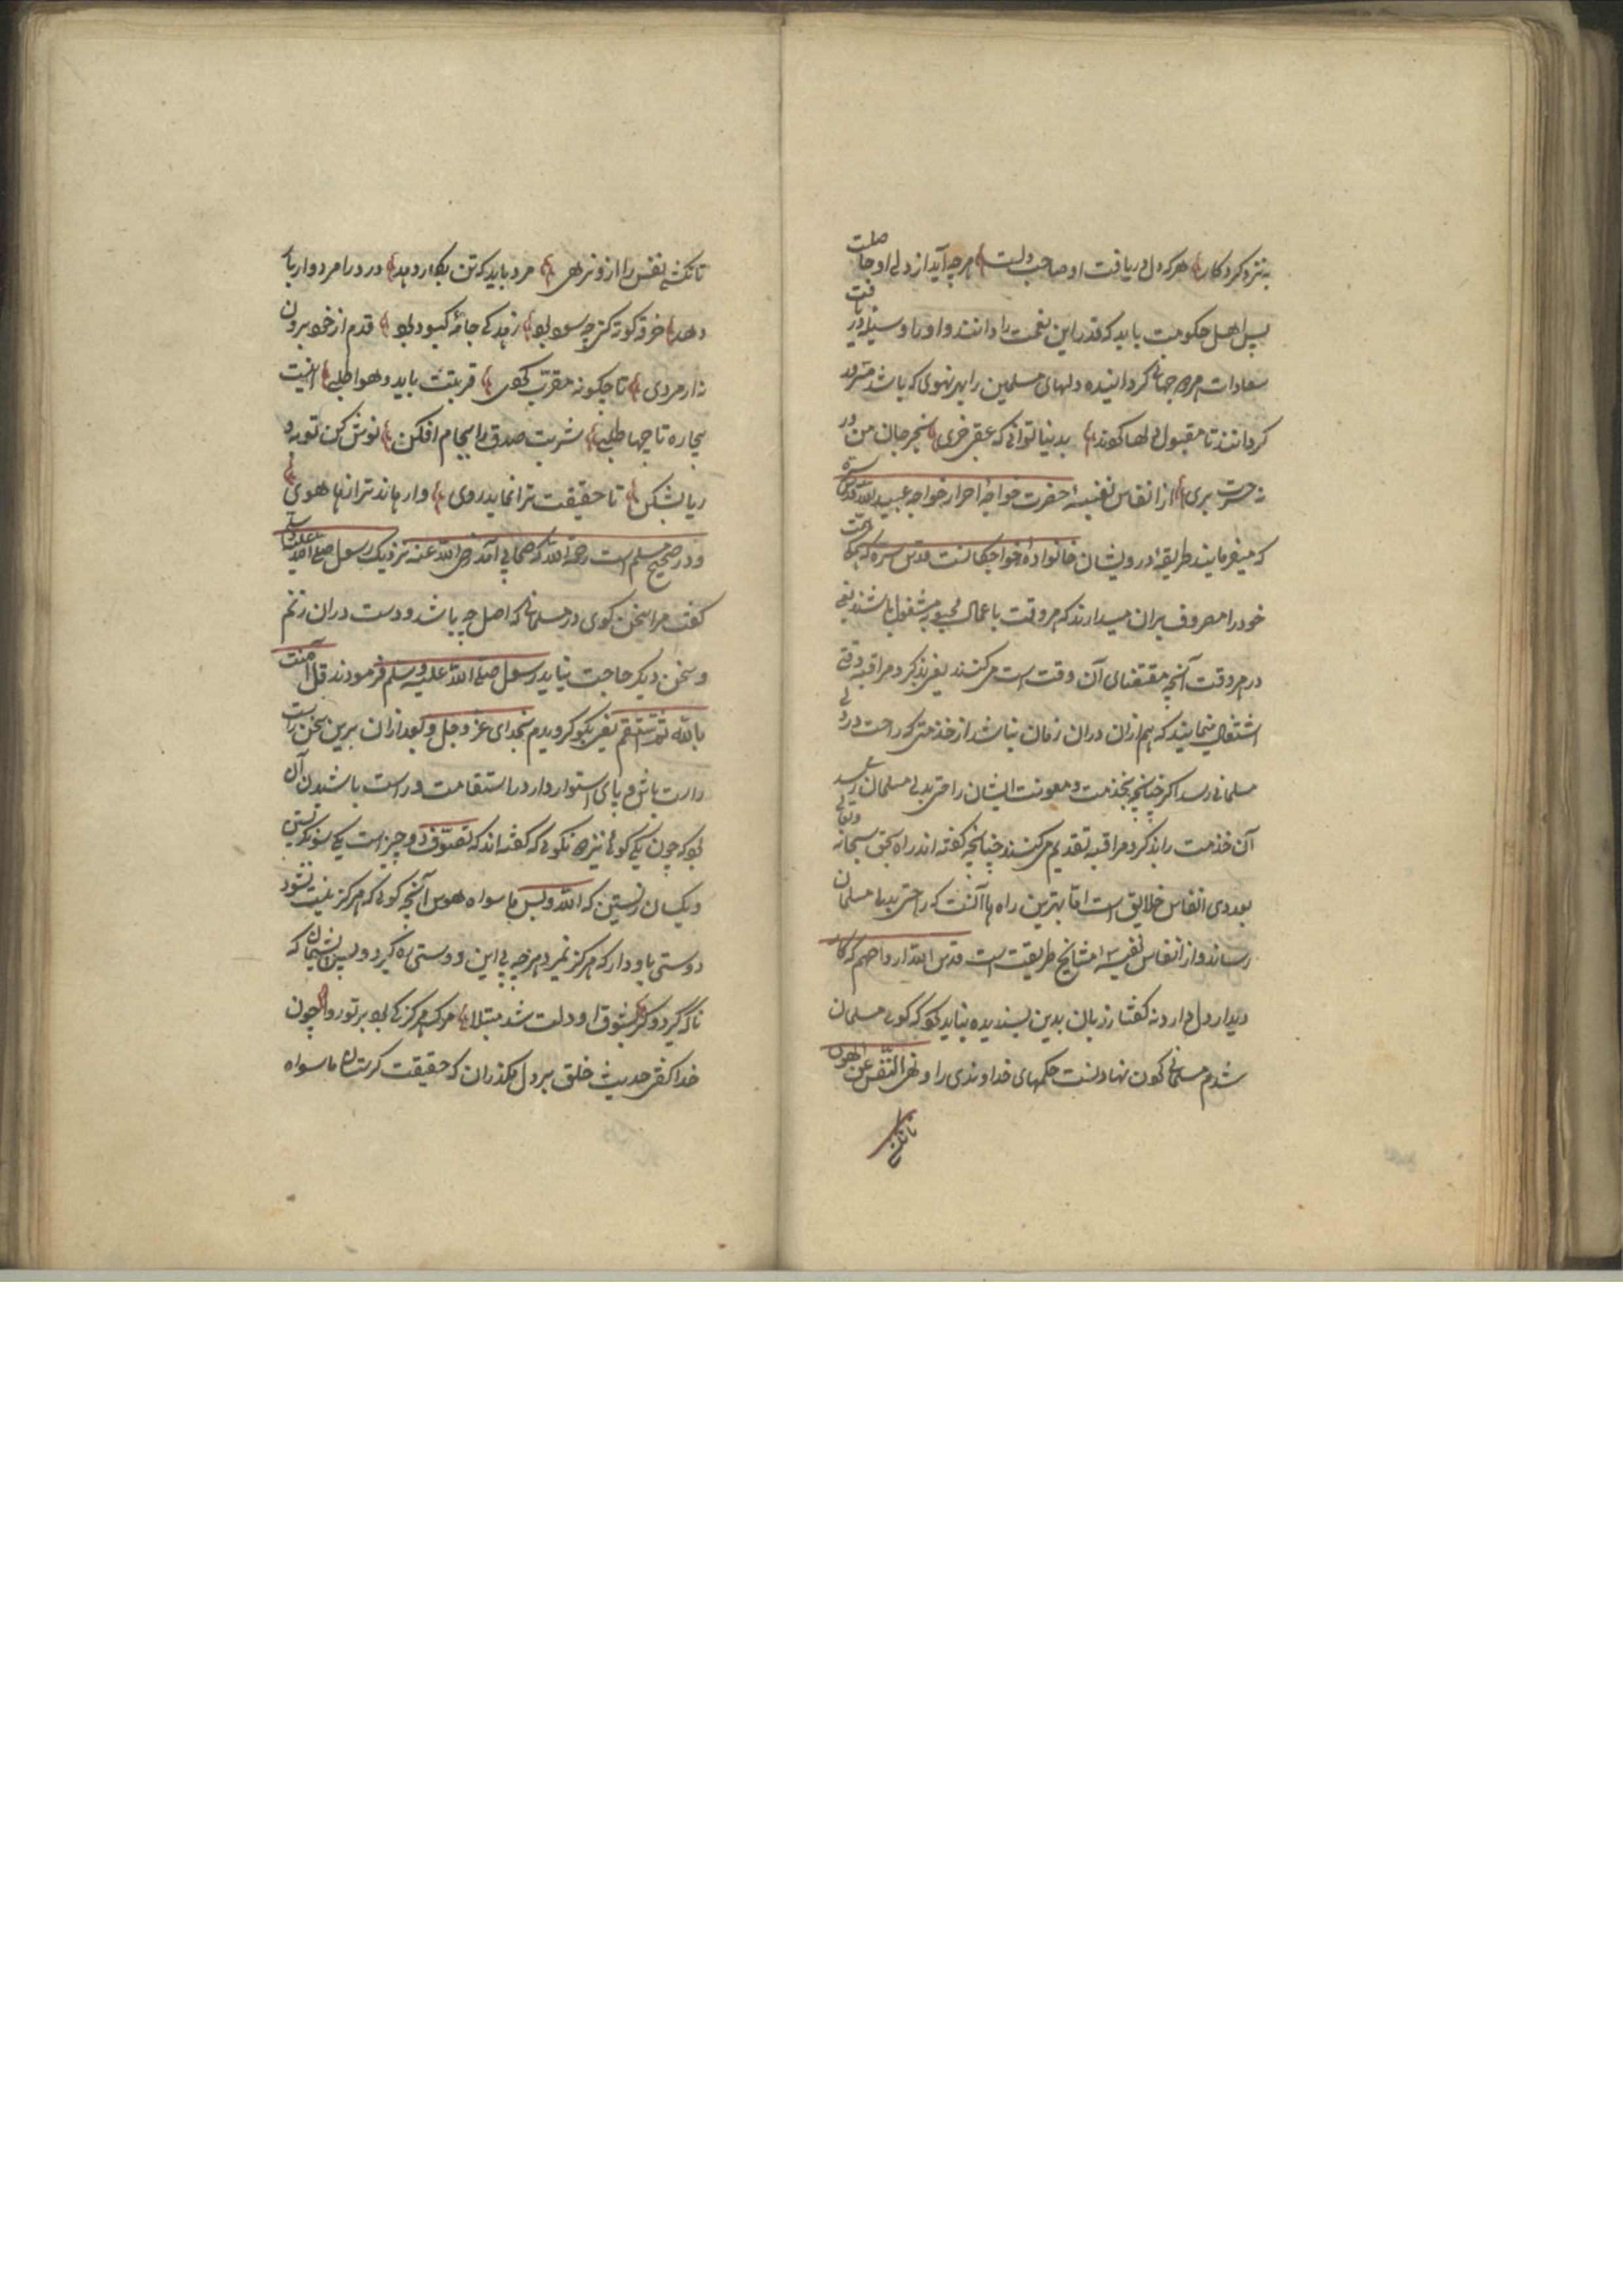 به نزد کردکار هر که دل دریافت او صاحب دلست هرچه آید از دل او حاصلست
پس اهل حکومت باید که قدر این نعمت را دانند و او را وسیلۀ دریافت
سعادات هر دو جهانی کردانیده دلهای مسلمین را بهر نهوی که باشد مسرور
کردانند تا مقبول دلها کردند بدنیا توانی که عقبی خری بخر جان من ور
نه حسرت بری از انفاس نفیسۀ حضرت خواجۀ احرار خواجه عبیدالله قدس سره
که میفرمایند طریقۀ درویشان خانوادۀ خواجکانست قدس سره که همکی همت
خود را مصروف بران میدارند که هر وقت باعمال محبوبه مشغول باشند یعنی
در هر وقت آنچه مقتضای آن وقت است می کنند یعنی بذکر و مراقبه وقتی
اشتغال مینمایند که اهم ازان دران زمان نباشد از خذمتی که راحت در دلی
مسلمانی رسد اکر چنانچه بخذمت و معونت ایشان راحتی بدل مسلمان رسد
آن خذمت را بذکر و مراقبه تقدیم می کنند چنانچه کفته اند راه بحق سبحانه وتعالی
بعددی انفاس خلایق است امّا بهترین راه ها آنست که راحتی بدل مسلمان
رساند و از انفاس نفیسۀ مشایخ طریقت است قدس الله ارواحهم که کار
دیدار دل دارد نه کفتار زبان بدین پسندیده نیاید که کوئی مسلمان
شدم مسلمانی کردن نهادنست حکمهای خداوندی را و نهی النّفس عن الهوی
تا نکشی
تا نکشی نفس را ازو نرهی مرد باید که تن بکار دهد درد را مردوار بار
دهد خرقه کوته کنی چه سود بود زهد کی جامۀ کبود بود قدم از خود برون
نه ار مردی تا چکونه مقرّب کردی قربتت باید و هوا طلبی اینت
بیچاره تا چها طلبی شربت صدق را بجام افکن نوش کن توبه و
ریا بشکن تا حقیقت ترا نماید روی وارهاند ترا زهاهوی
و در صحیح مسلم است رحمة الله که صحابی آمد رضی الله عنه نزدیک رسول صلی الله علیه وسلم
کفت مرا سخن کوی در مسلمانی که اصل چه باشد و دست دران زنم
و سخن دیکر حاجت نیاید رسول صلی الله علیه و سلم فرمودند قل آمنت
بالله ثمّ استقم یعنی بکو کرویدم بخدای عزّ وجل و بعد ازان برین سخن راست
راست باش و پای استوار دار در استقامت و راست باشیدن آن
بود که چون یکی کوئی نیز ده نکوئی که کفته اند که تصوّف دو چیز است یکی سو نکریستن
و یکسان زیستن که الله و بس ما سواه هوس آنچه کوئی که هرکز نیست نشود
دوستی باو دار که هرکز نمیرد هرچه پی این دوستی ره کیرد و پس پشیمان که
ناکه کیرد و کر بشوق او دلت شد مبتلا مرک هرکز کی بود بر تو روا چون
خدا کفتی حدیث خلق بر دل مکذران که حقیقت ما سواه